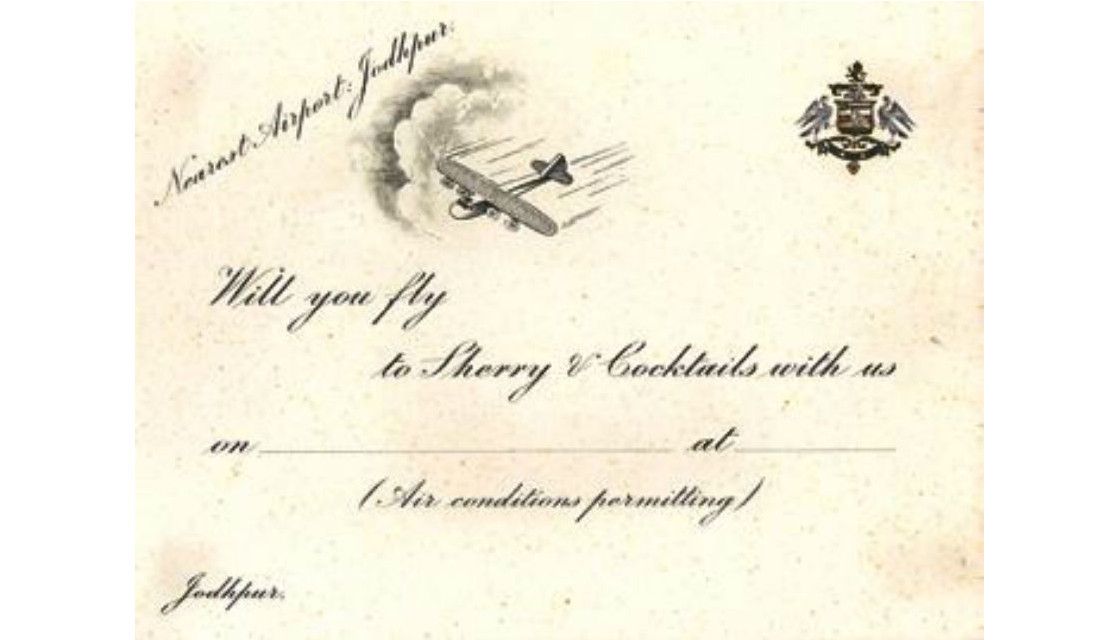 Nearest Airport: Jodhpur.
Will you fly
to Sherry & Cocktails with us
on at
(Air conditions permitting)
Jodhpur.